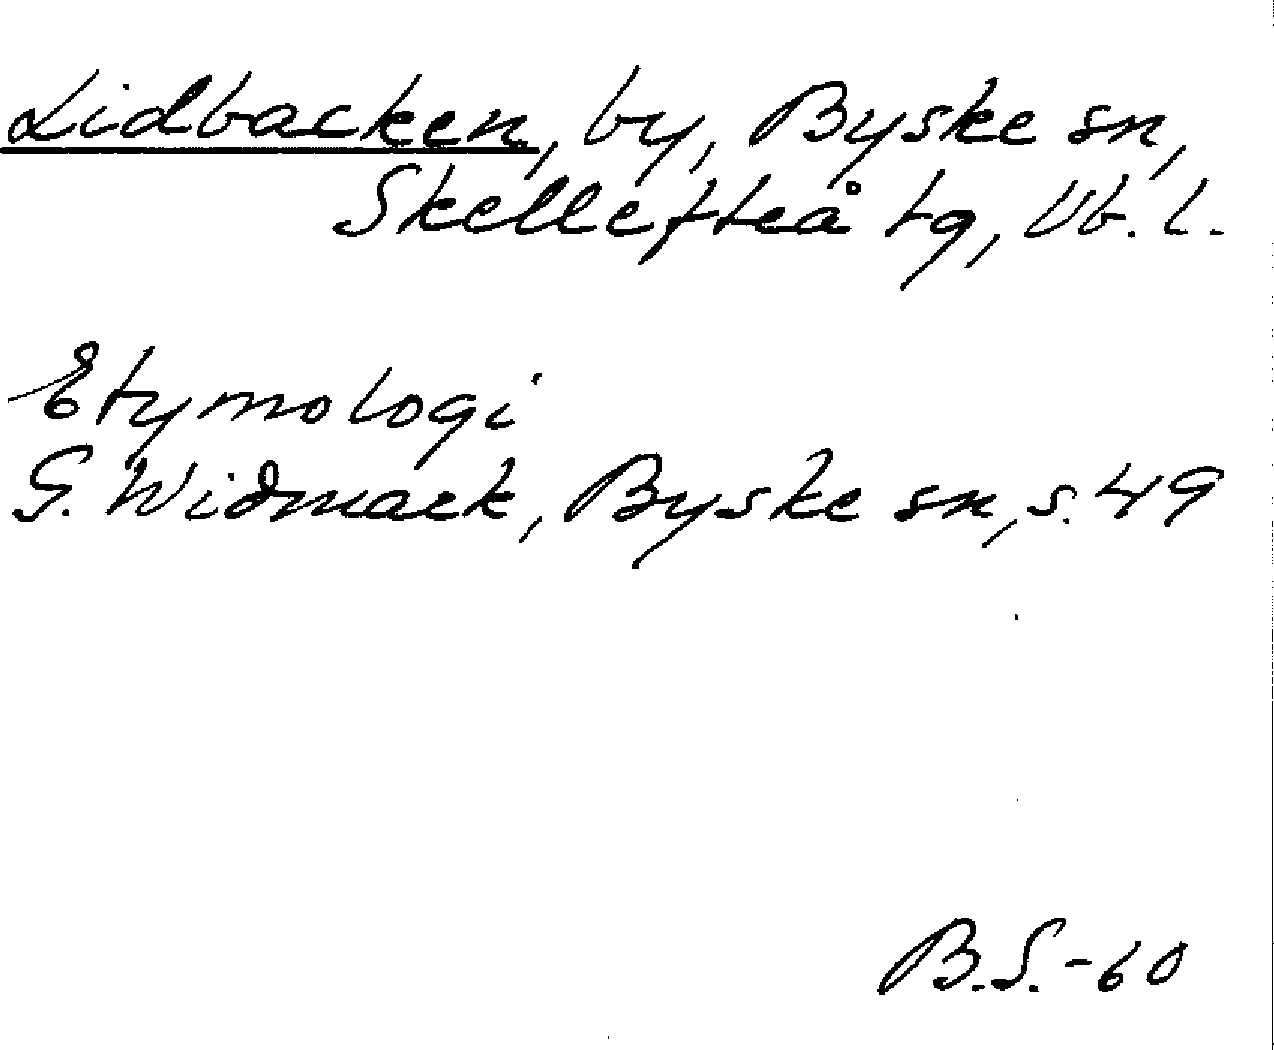 Lidbacken, by, Byske sn,
Skellefteå tg, Vb. l.
Etymologi
G. Widmark, Byske sn, s. 49
B.S.-60